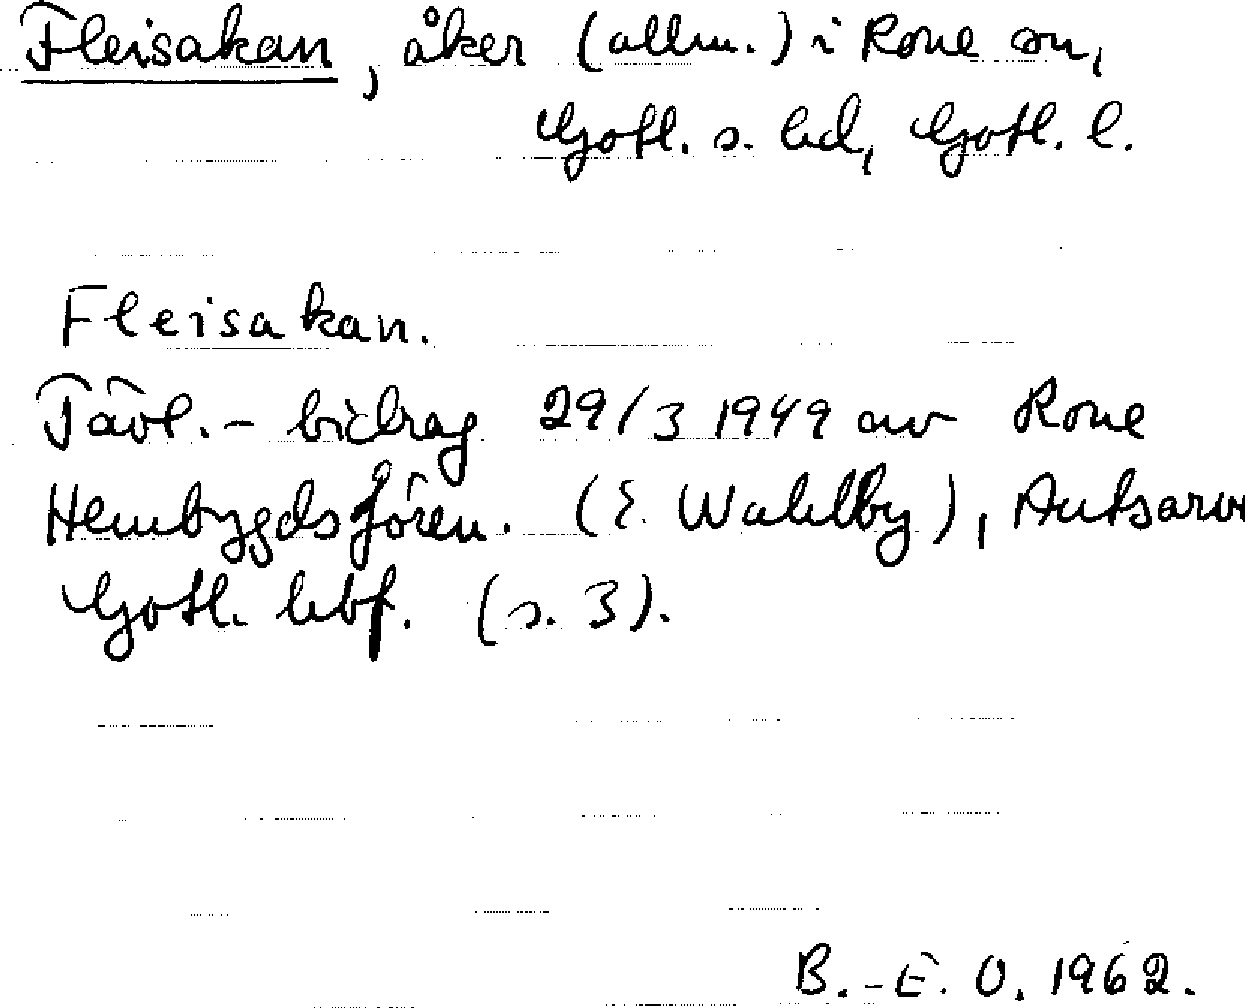 Fleisakan, åker (allm.) i Rone sn,
Gotl. s. hd, Gotl. l.
Fleisakan.
Tävl.- bidrag 29/3 1949 av Rone
Hembygdsfören. (E. Wahlby), Autsarve
Gotl. hbf. (s. 3).
B.-E. O. 1962.